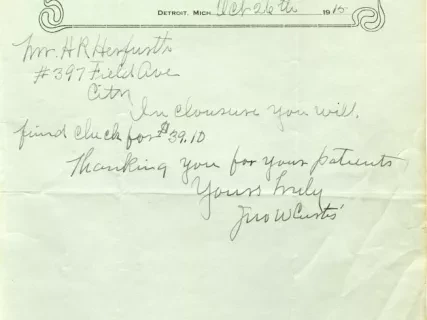 Detroit, Mich. Oct 26th 1915
Mr. H R Herfurth
#397 Field Ave
City
In closure you will
find check for $39.10
Thanking you for your patients
Yours truly
Jno W Curtis